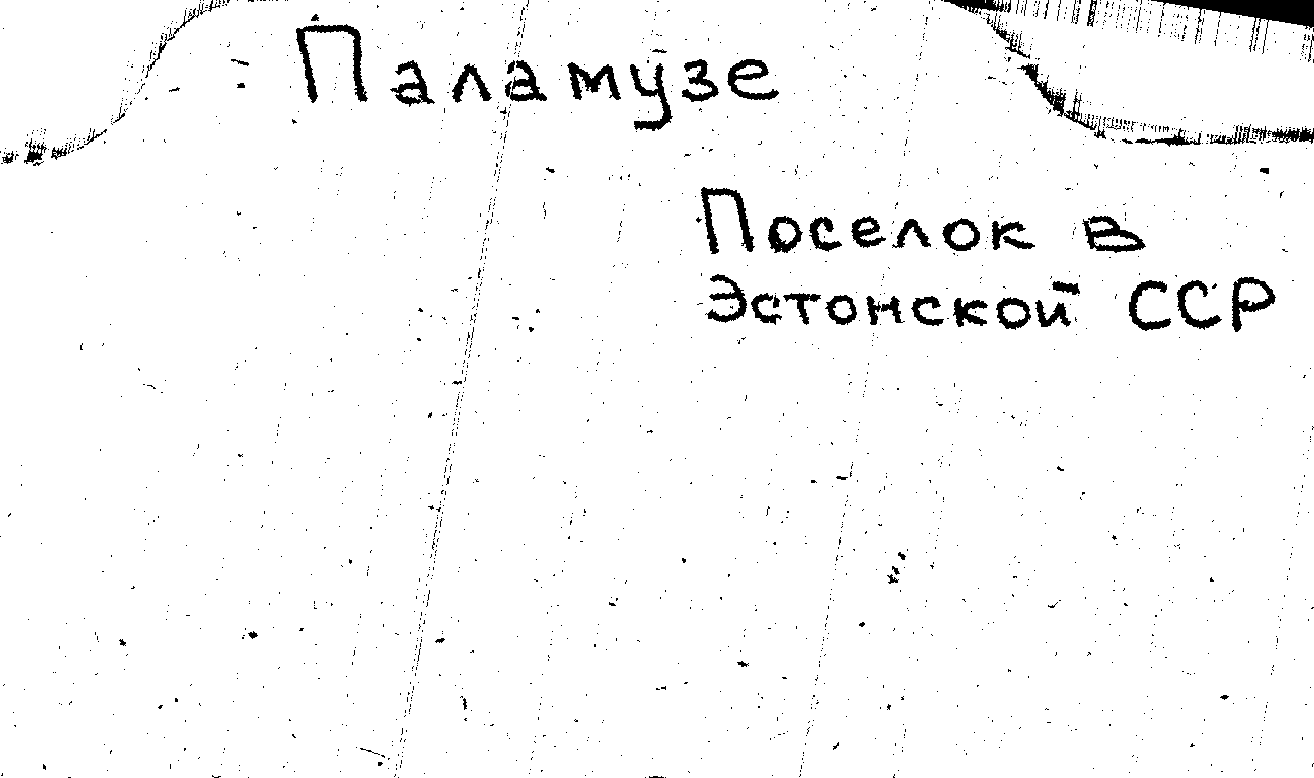 Паламузе
Поселок в
Эстонской ССР